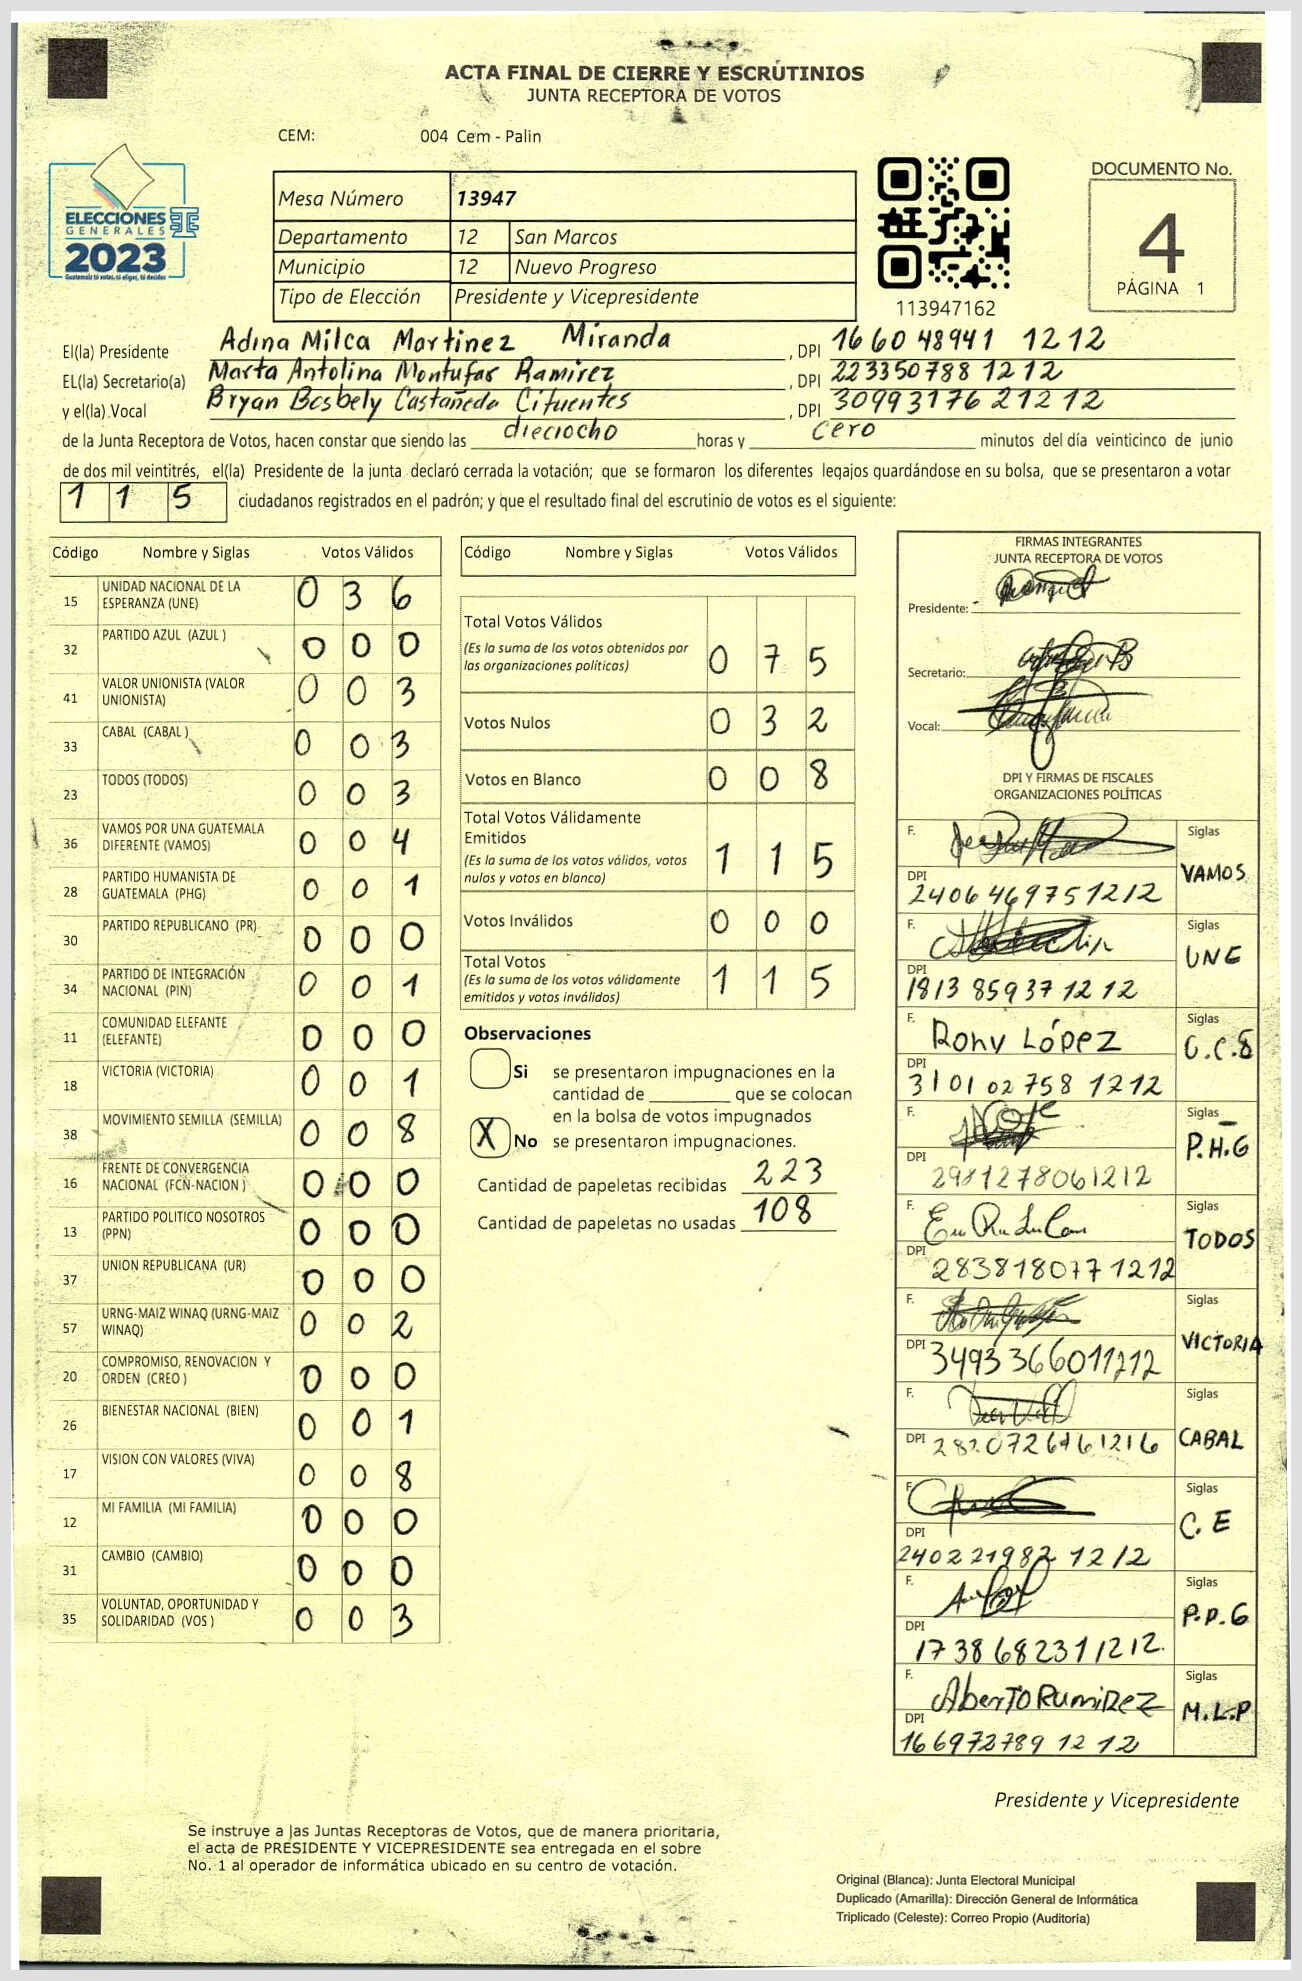 ACTA FINAL DE CIERRE Y ESCRUTINIOS
JUNTA RECEPTORA DE VOTOS
CEM: 004 Cem - Palin
ELECCIONES
GENERALES
2023
Guatemala tú votas, tú eliges, tú decides
Mesa Número 13947
Departamento 12 San Marcos
Municipio 12 Nuevo Progreso
Tipo de Elección Presidente y Vicepresidente
113947162
DOCUMENTO No.
4
PÁGINA 1
El(la) Presidente Adina Milca Martinez Miranda , DPI 1660 48941 1212
EL(la) Secretario(a) Marta Antolina Montufar Ramirez , DPI 223350788 1212
y el(la) Vocal Bryan Bosbely Castañeda Cifuentes , DPI 30993176 21212
de la Junta Receptora de Votos, hacen constar que siendo las dieciocho horas y cero minutos del día veinticinco de junio
de dos mil veintitrés, el(la) Presidente de la junta declaró cerrada la votación; que se formaron los diferentes legajos guardándose en su bolsa, que se presentaron a votar
1 1 5 ciudadanos registrados en el padrón; y que el resultado final del escrutinio de votos es el siguiente:
Código Nombre y Siglas Votos Válidos
15 UNIDAD NACIONAL DE LA ESPERANZA (UNE) 0 3 6
32 PARTIDO AZUL (AZUL ) 0 0 0
41 VALOR UNIONISTA (VALOR UNIONISTA) 0 0 3
33 CABAL (CABAL ) 0 0 3
23 TODOS (TODOS) 0 0 3
36 VAMOS POR UNA GUATEMALA DIFERENTE (VAMOS) 0 0 4
28 PARTIDO HUMANISTA DE GUATEMALA (PHG) 0 0 1
30 PARTIDO REPUBLICANO (PR) 0 0 0
34 PARTIDO DE INTEGRACIÓN NACIONAL (PIN) 0 0 1
11 COMUNIDAD ELEFANTE (ELEFANTE) 0 0 0
18 VICTORIA (VICTORIA) 0 0 1
38 MOVIMIENTO SEMILLA (SEMILLA) 0 0 8
16 FRENTE DE CONVERGENCIA NACIONAL (FCN-NACION ) 0 0 0
13 PARTIDO POLITICO NOSOTROS (PPN) 0 0 0
37 UNION REPUBLICANA (UR) 0 0 0
57 URNG-MAIZ WINAQ (URNG-MAIZ WINAQ) 0 0 2
20 COMPROMISO, RENOVACION Y ORDEN (CREO ) 0 0 0
26 BIENESTAR NACIONAL (BIEN) 0 0 1
17 VISION CON VALORES (VIVA) 0 0 8
12 MI FAMILIA (MI FAMILIA) 0 0 0
31 CAMBIO (CAMBIO) 0 0 0
35 VOLUNTAD, OPORTUNIDAD Y SOLIDARIDAD (VOS ) 0 0 3
Código Nombre y Siglas Votos Válidos
Total Votos Válidos
(Es la suma de los votos obtenidos por
las organizaciones políticas) 0 7 5
Votos Nulos 0 3 2
Votos en Blanco 0 0 8
Total Votos Válidamente
Emitidos
(Es la suma de los votos válidos, votos
nulos y votos en blanco) 1 1 5
Votos Inválidos 0 0 0
Total Votos
(Es la suma de los votos válidamente
emitidos y votos inválidos) 1 1 5
Observaciones
Si se presentaron impugnaciones en la
cantidad de ________ que se colocan
en la bolsa de votos impugnados
X No se presentaron impugnaciones.
Cantidad de papeletas recibidas 223
Cantidad de papeletas no usadas 108
FIRMAS INTEGRANTES
JUNTA RECEPTORA DE VOTOS
Presidente:
Secretario:
Vocal:
DPI Y FIRMAS DE FISCALES
ORGANIZACIONES POLÍTICAS
F. Siglas
VAMOS
DPI 2406469751212
F. Siglas
UNE
DPI 1813 85937 12 12
F. Rony López Siglas
DPI 3101 02 758 1212
F. Siglas
P.H.G
DPI 2981278061212
F. Siglas
TODOS
DPI 2838180771212
F. Siglas
VICTORIA
DPI 3493366011212
F. Siglas
CABAL
DPI
F. Siglas
C.E
DPI 240221982 1212
F. Siglas
P.P.G
DPI 1738682311212.
F. Alberto Ramirez Siglas
M.L.P
DPI 166972789 12 12
Presidente y Vicepresidente
Se instruye a las Juntas Receptoras de Votos, que de manera prioritaria,
el acta de PRESIDENTE Y VICEPRESIDENTE sea entregada en el sobre
No. 1 al operador de informática ubicado en su centro de votación.
Original (Blanca): Junta Electoral Municipal
Duplicado (Amarilla): Dirección General de Informática
Triplicado (Celeste): Correo Propio (Auditoría)